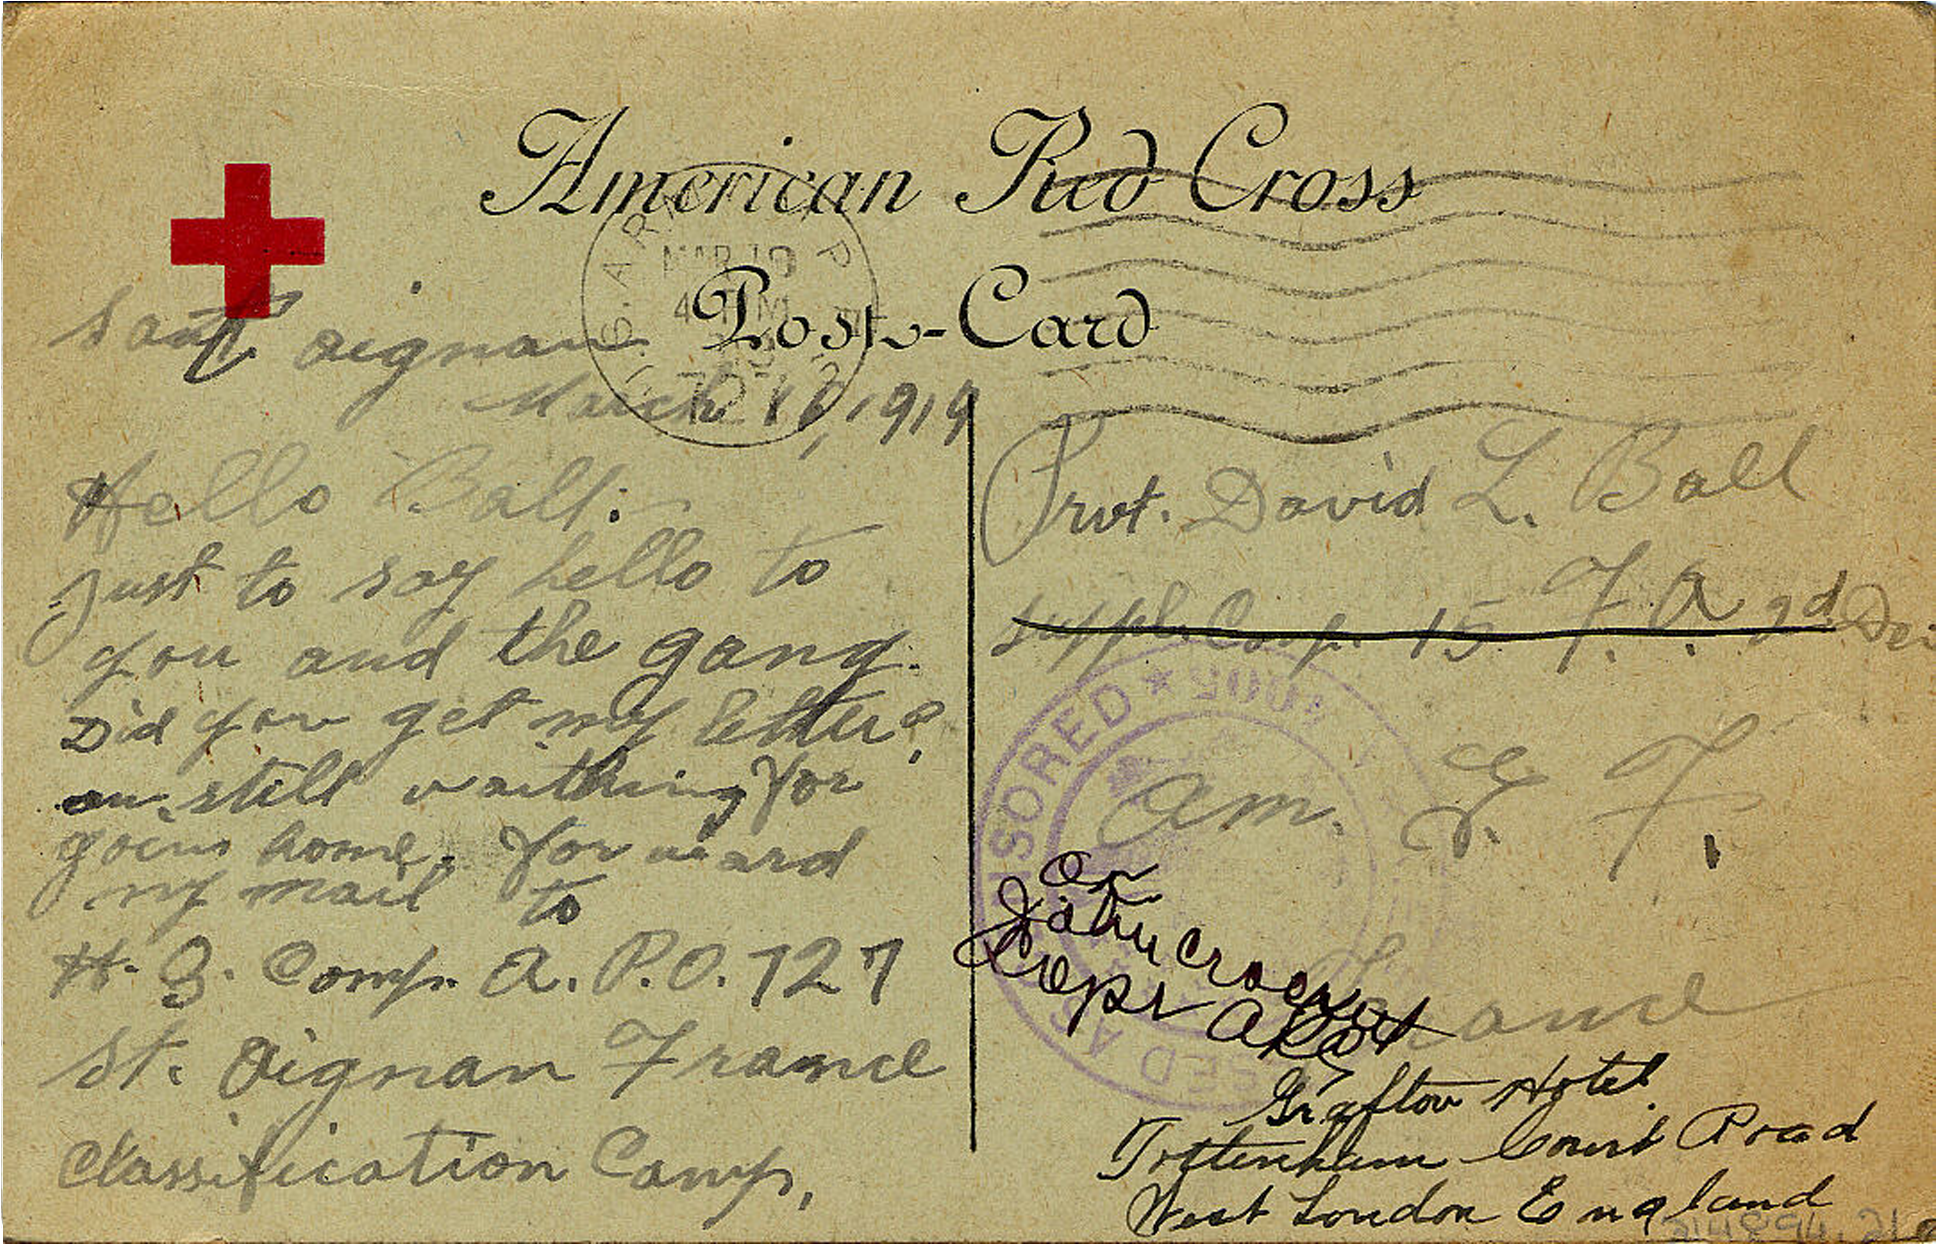 American Red Cross
Post-Card
MAR 19
Saint Aignan
March 16, 1919
Hello Ball:
Just to say hello to
you and the gang.
Did you get my letter?
am still waithing for
goeing home. Forward
my mail to
H. Q. Comp. A. P. O. 727
St. Aignan France
Classification Camp.
Prvt. David L. Ball
Suppl. Comp. 15 F. A. 2d Dei
Am. E. F.
France
Grafton Hotel
Tottenham Court Road
West London England